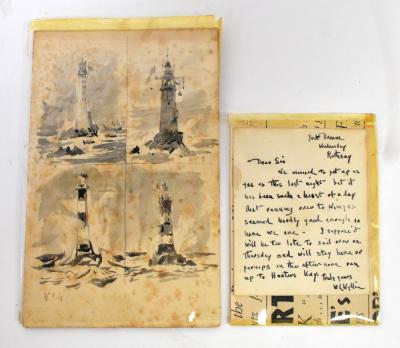 Yacht
Wednesday
Rothesay
Dear Sir
We managed to get up as
far as this last night but it
has been such a beast of a day
that running over to
seemed hardly good enough so
here we are. I suppose it
will be too late to sail over on
Thursday and will stay here or
perhaps in the afternoon run
up to Hunters Quay. truly yours
W L Wyllie
the
R1
E's